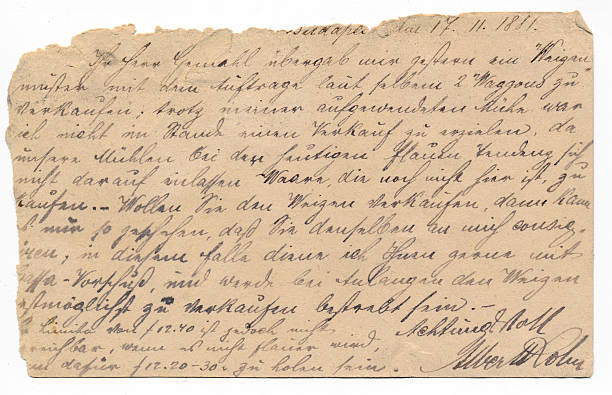 Budapest den 17. 11. 1881.
Ihr Herr Gemahl übergab mir gestern ein Weizen
muster mit dem Auftrage laut selbem 2 Waggons zu
verkaufen; trotz meiner aufgewendeten Mühe war
ich nicht im Stande einen Verkauf zu erzielen, da
unsere Mühlen bei der heutigen flauen Tendenz sich
nicht darauf einlassen Waare, die noch nicht hier ist, zu
kaufen. – Wollen Sie den Weizen verkaufen, dann kann
es nur so geschehen, daß Sie denselben an mich consig-
iren; in diesem Falle diene ich Ihnen gerne mit
assa-Vorschuß, und werde bei Anlangen den Weizen
estmöglichst zu verkaufen bestrebt sein. –
Limito von f 12.40 ist jedoch nicht Achtungsvoll
reichbar, wenn es nicht flauer wird
dafür f 12.20-30. zu holen sein. Albert